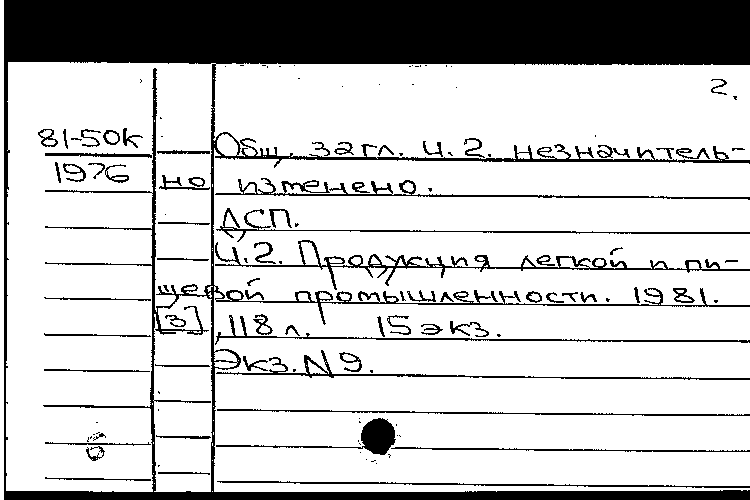 2.
81-50к Общ. загл. Ч. 2. незначитель-
1976 но изменено.
ДСП.
Ч.2. Продукция легкой и пи-
щевой промышленности. 1981.
[3], 118 л. 15 экз.
Экз. N 9.
6